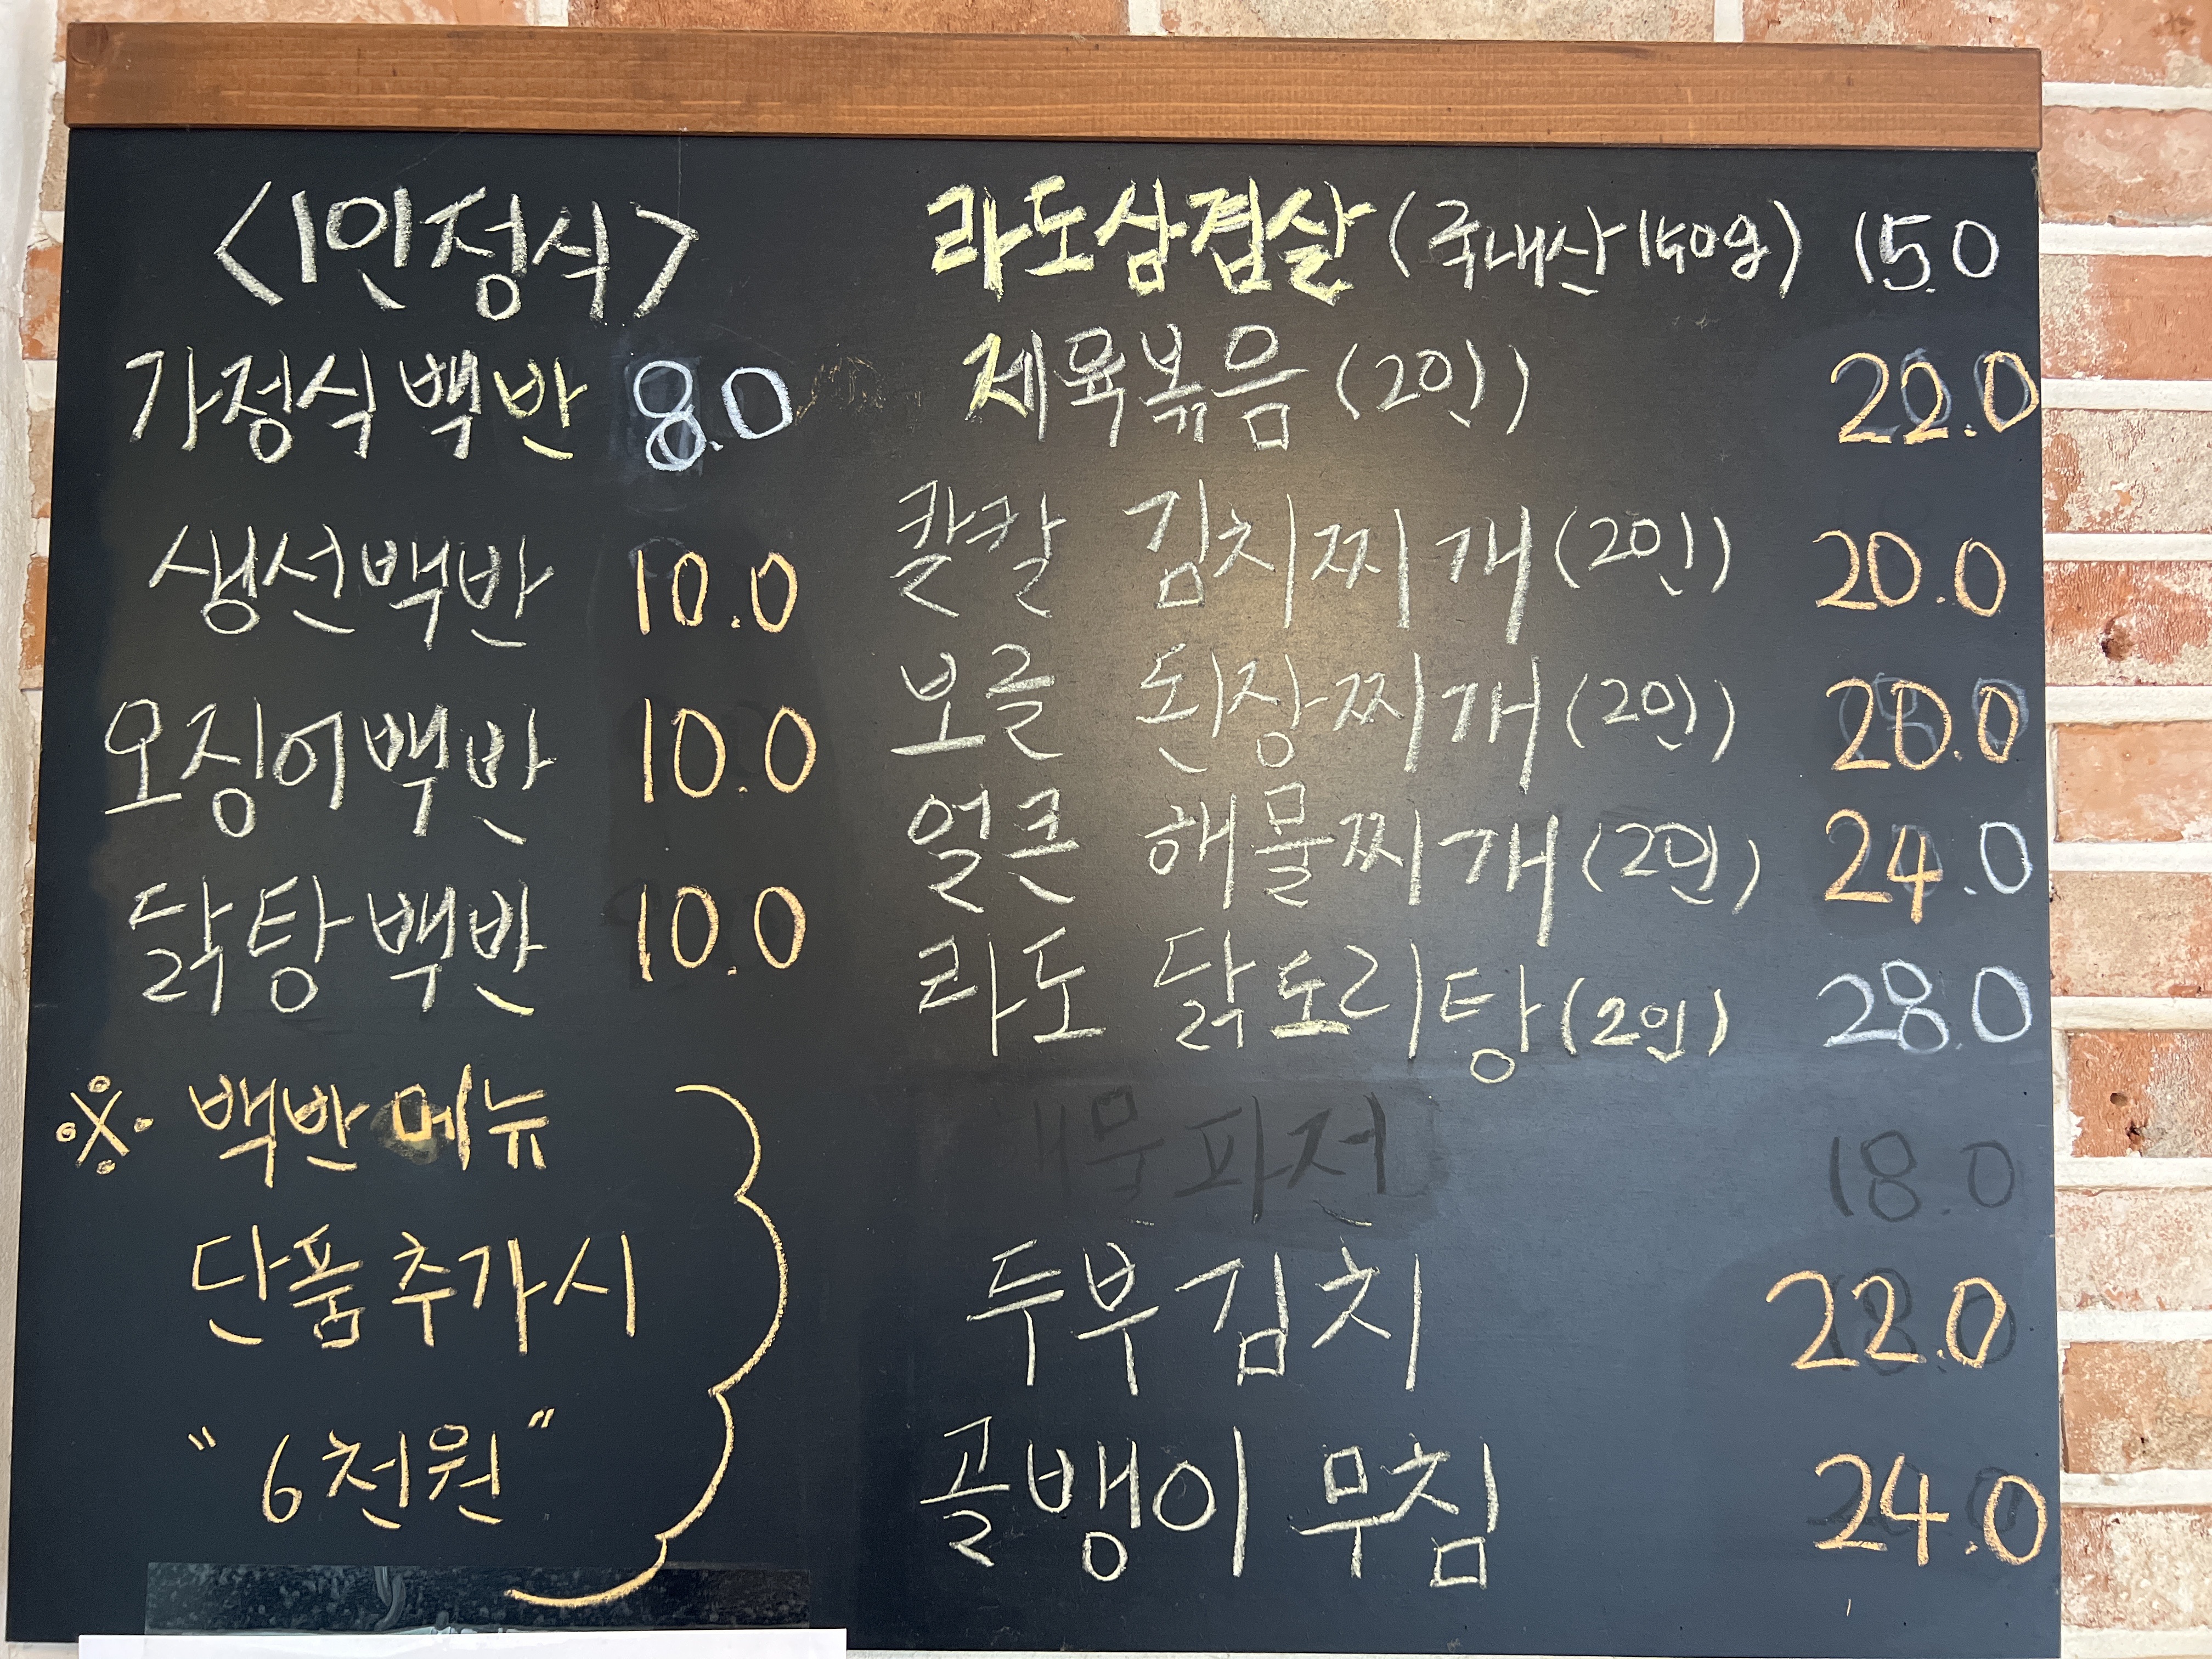 <1인정식>
가정식백반 8.0
생선백반 10.0
오징어백반 10.0
닭탕백반 10.0
※ 백반메뉴
단품추가시
"6천원"
라도삼겹살(국내산140g) 15.0
제육볶음(2인) 22.0
칼칼 김치찌개(2인) 20.0
보글 된장찌개(2인) 20.0
얼큰 해물찌개(2인) 24.0
라도 닭도리탕(2인) 28.0
해물파전 18.0
두부김치 22.0
골뱅이 무침 24.0